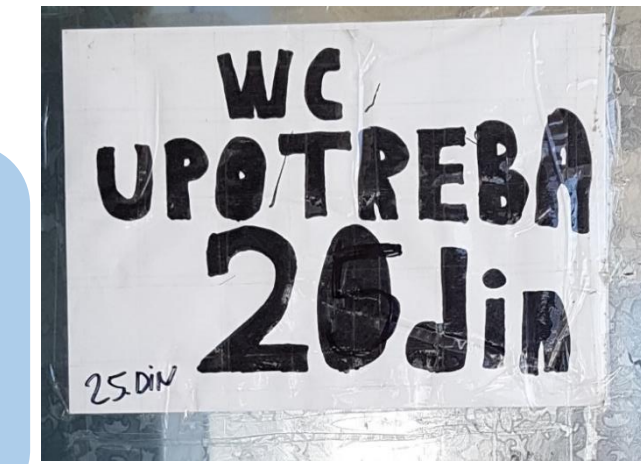 WC
UPOTREBA
25 din
25. DIN